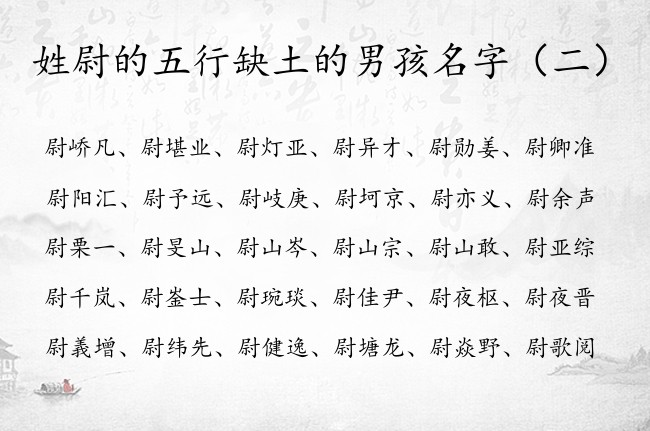 姓尉的五行缺土的男孩名字（二）
尉峤凡、尉堪业、尉灯亚、尉异才、尉勋姜、尉卿准
尉阳汇、尉予远、尉岐庚、尉坷京、尉亦义、尉余声
尉栗一、尉旻山、尉山岑、尉山宗、尉山敢、尉亚综
尉千岚、尉崟士、尉琬琰、尉佳尹、尉夜枢、尉夜晋
尉義增、尉纬先、尉健逸、尉塘龙、尉焱野、尉歌阅